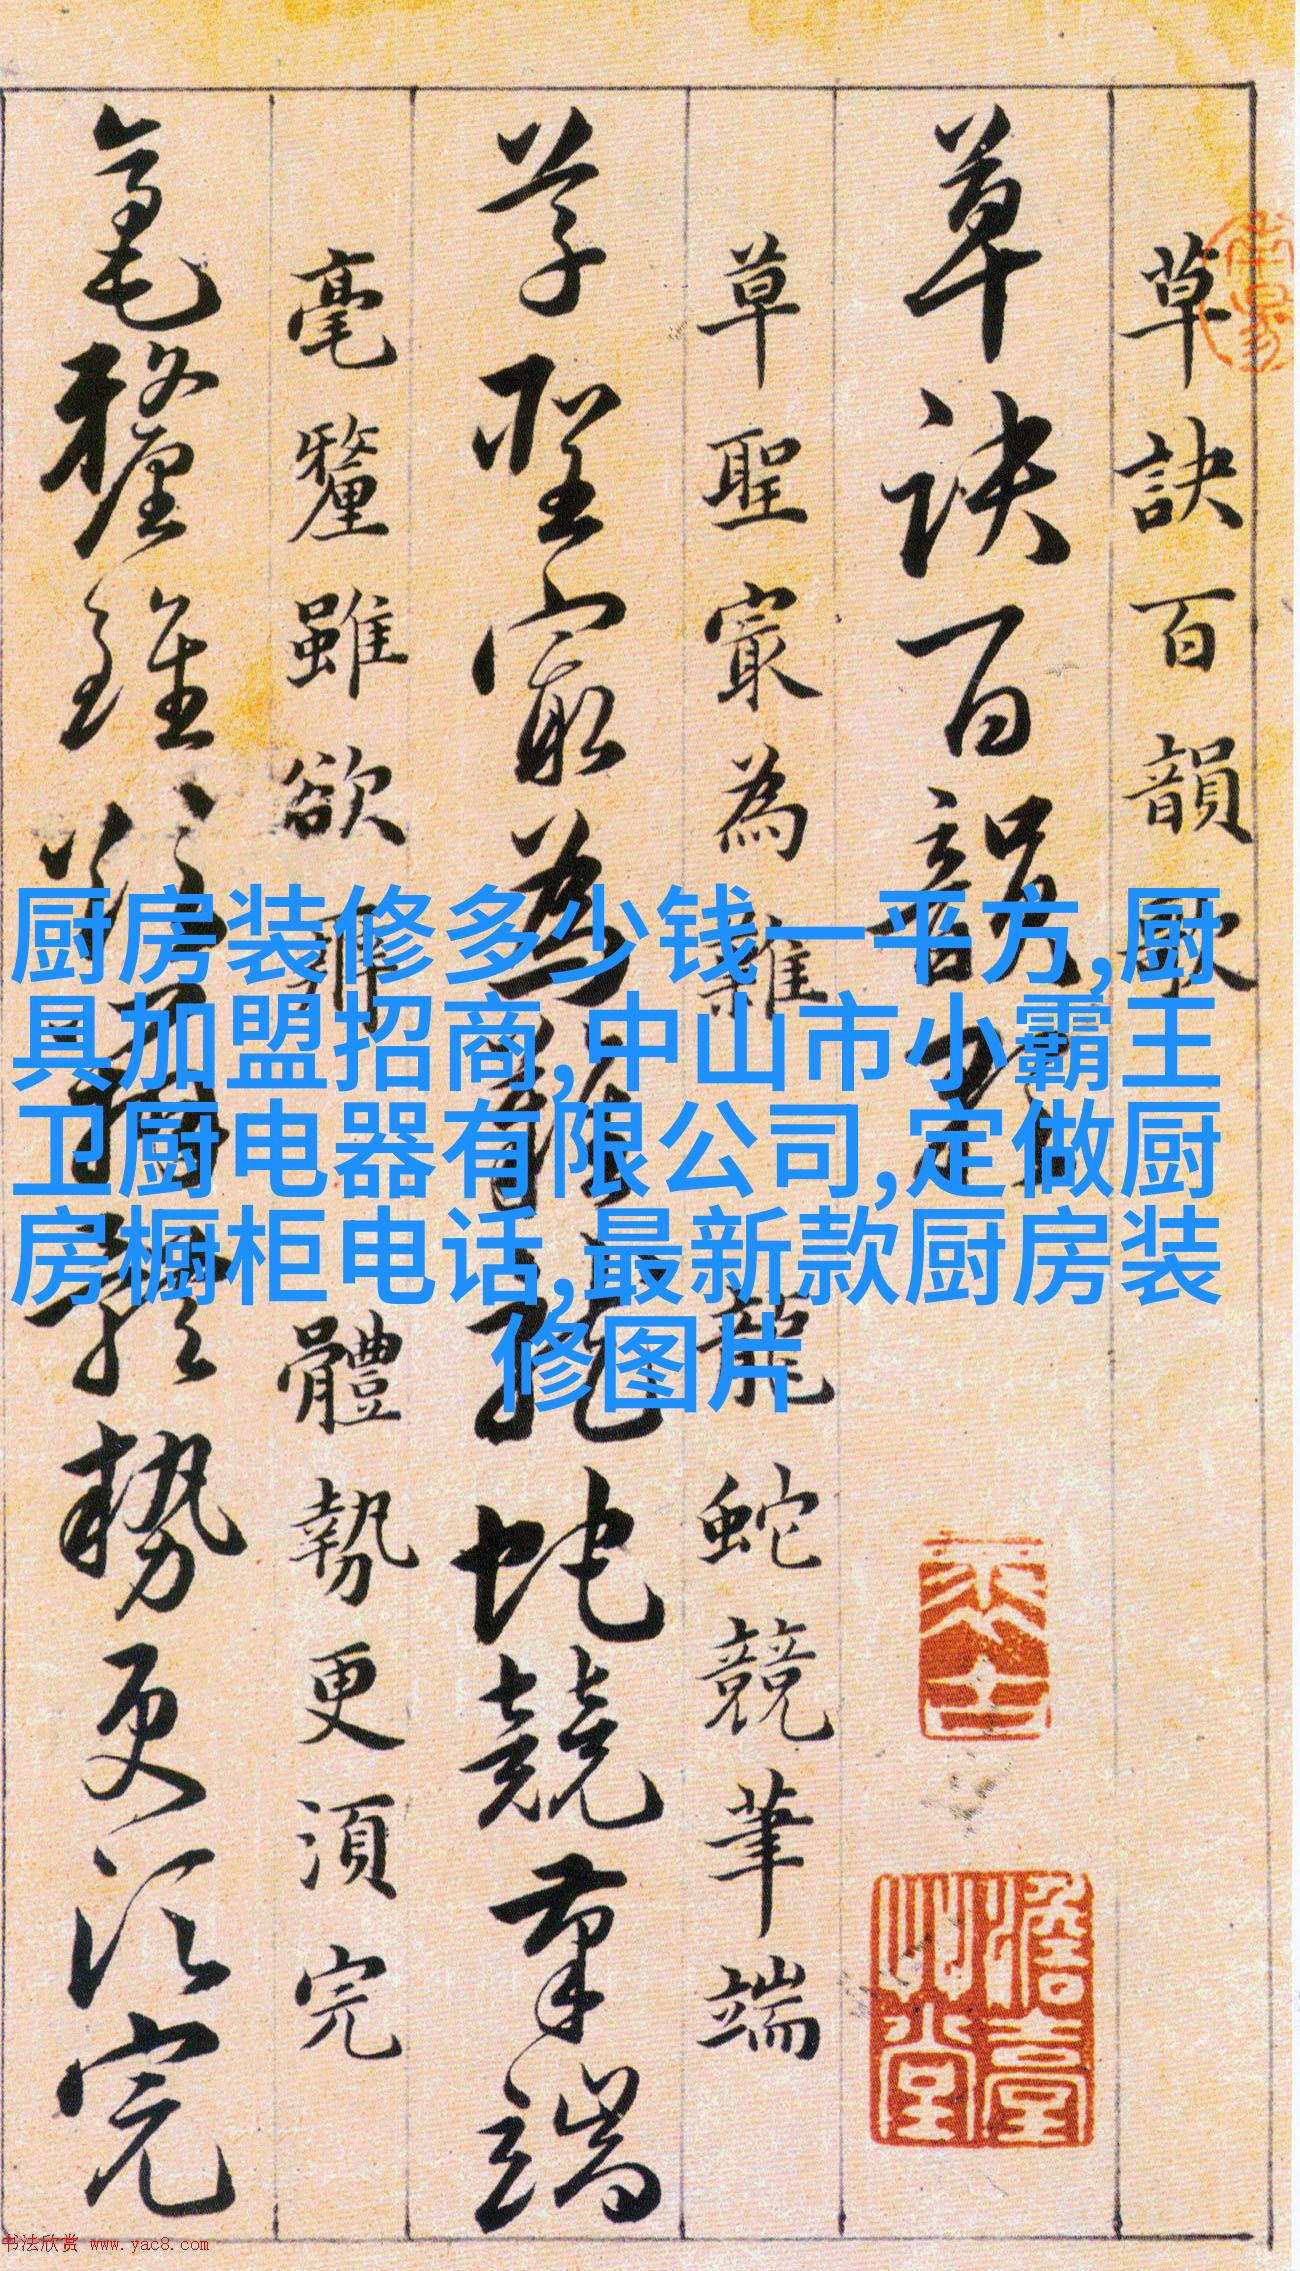 草訣百韻歌
草訣百韻歌
草聖寂為難龍蛇競筆端
草聖寂為難龍蛇競筆端
毫釐雖欲辨體勢更須完
毫釐雖欲辨體勢更須完
厨房装修多少钱一平方,厨
具加盟招商,中山市小霸王
卫厨电器有限公司,定做厨
房橱柜电话,最新款厨房装
修图片
书法欣赏 www.yac8.com